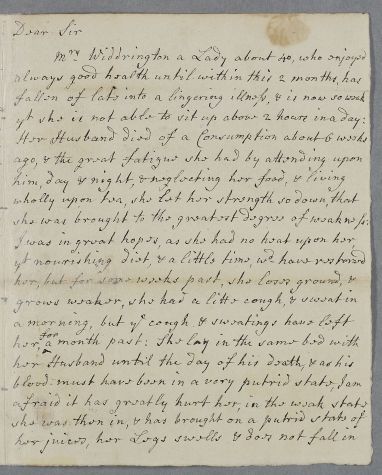 Dear Sir
Mrs Widdrington a Lady about 40, who enjoyed
always good health until within this 2 months, has
fallen of late into a lingering illness, & is now so weak
yt she is not able to sit up above 2 hours in a day:
Her Husband died of a Consumption about 6 weeks
ago, & the great fatigue she had by attending upon
him, day & night, & neglecting her food, & living
wholly upon tea, she let her strength so down that
she was brought to the greatest degree of weakness:
I was in great hopes, as she had no heat upon her,
yt nourishing diet, & a little time, wd have restored
her, but for some weeks past, she loses ground, &
grows weaker, she had a litte cough, & sweat in
a morning, but ye cough & sweatings have left
her, for a month past: She lay in the same bed with
her Husband until the day of his death, & as his
blood must have been in a very putrid state, I am
afraid it has greatly hurt her, in the weak state
she was then in, & has brought on a putrid state of
her juices, her Legs swells & does not fall in